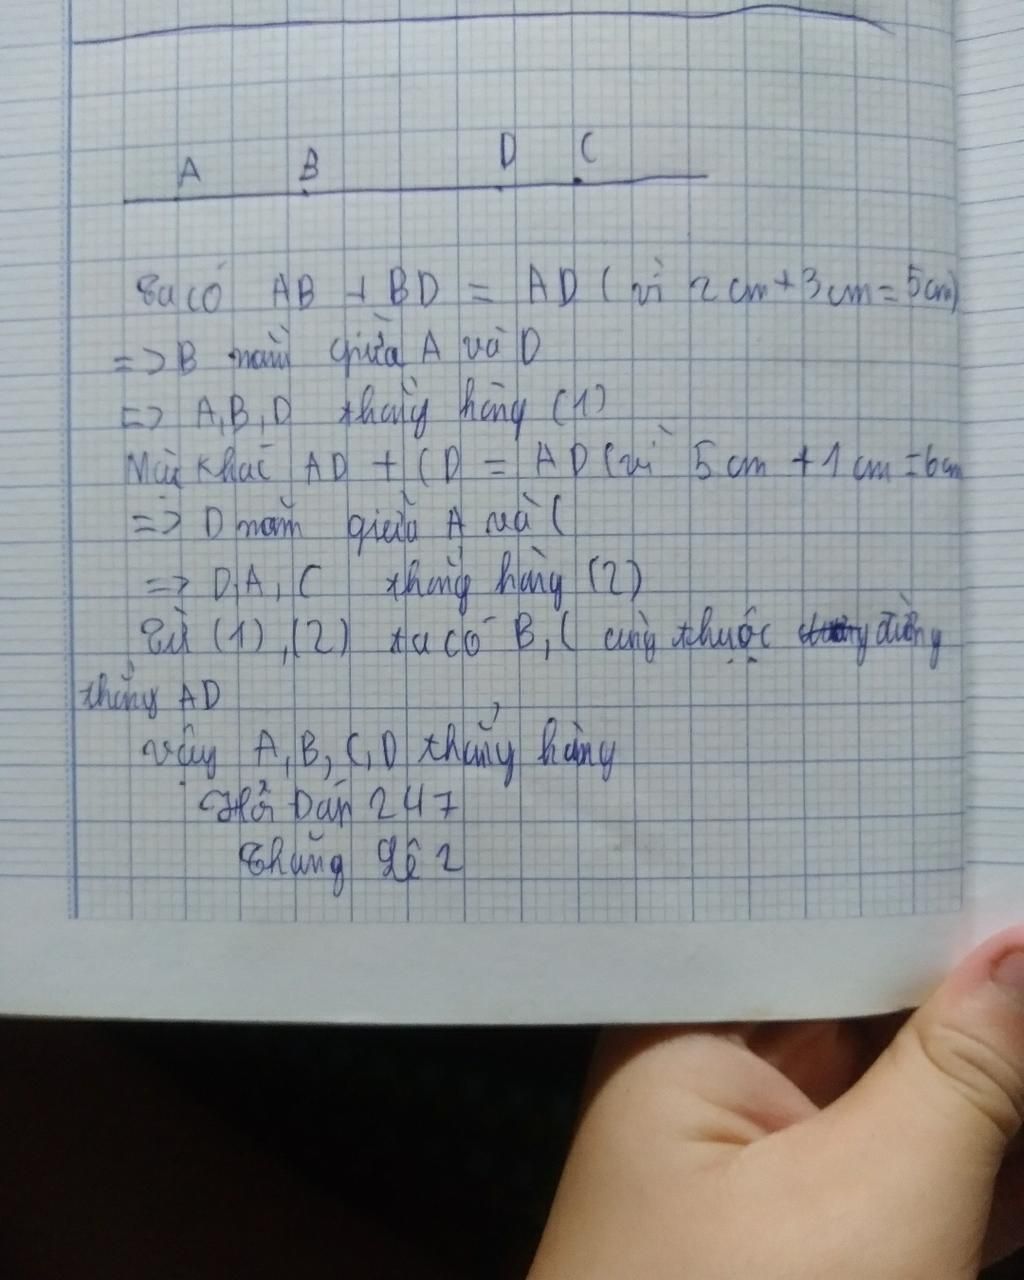 A B D C
Ta có AB + BD = AD (vì 2 cm + 3 cm = 5 cm)
=> B nằm giữa A và D
=> A, B, D thẳng hàng (1)
Mặt khác AD + CD = AD (vì 5 cm + 1 cm = 6 cm
=> D nằm giữa A và C
=> D, A, C thẳng hàng (2)
Từ (1), (2) ta có B, C cùng thuộc đường
thẳng AD
vậy A, B, C, D thẳng hàng
Hỏi Đáp 247
Thắng Lê 2